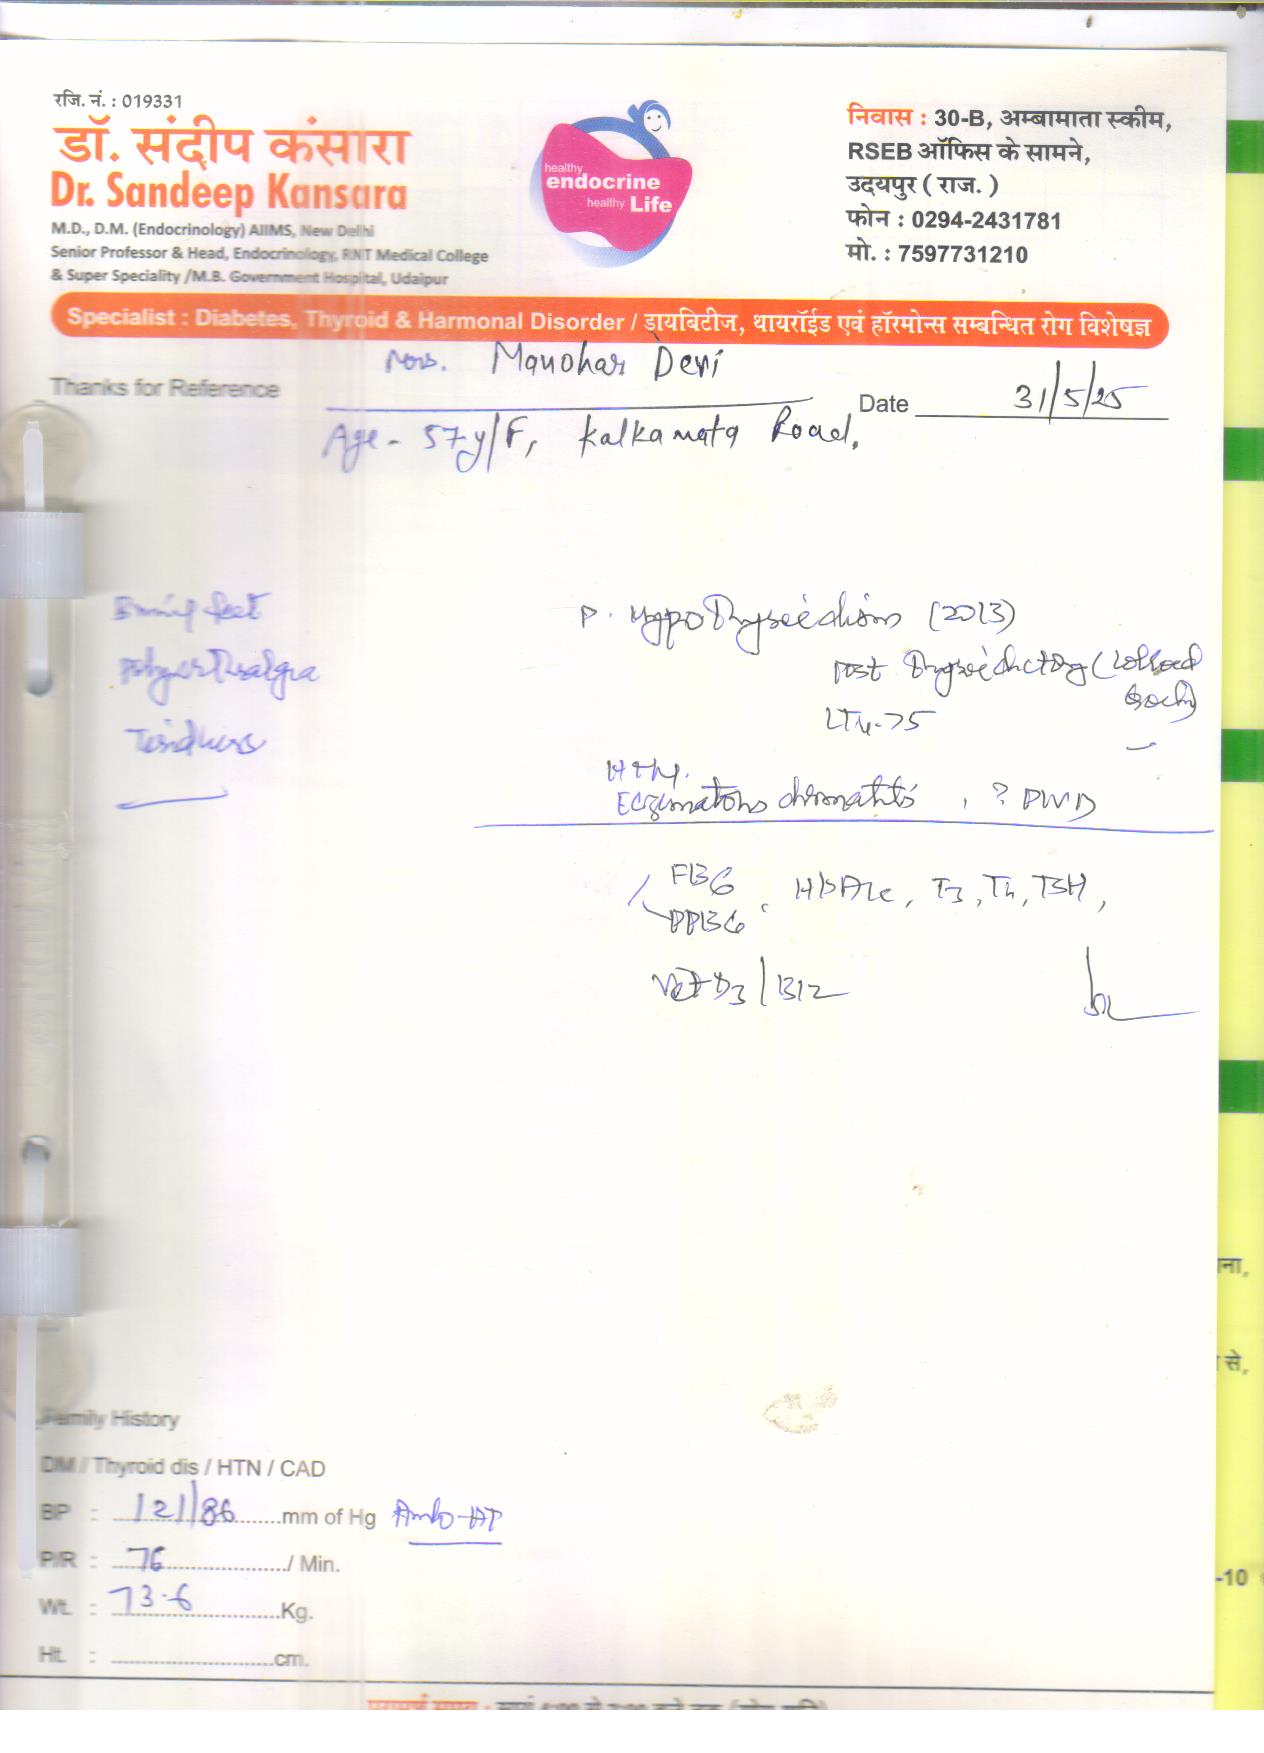 रजि. नं. : 019331
डॉ. संदीप कंसारा
Dr. Sandeep Kansara
M.D., D.M. (Endocrinology) AIIMS, New Delhi
Senior Professor & Head, Endocrinology, RNT Medical College
& Super Speciality /M.B. Government Hospital, Udaipur
healthy
endocrine
healthy Life
निवास : 30-B, अम्बामाता स्कीम,
RSEB ऑफिस के सामने,
उदयपुर ( राज. )
फोन : 0294-2431781
मो. : 7597731210
Specialist : Diabetes, Thyroid & Harmonal Disorder / डायबिटीज, थायरॉईड एवं हॉरमोन्स सम्बन्धित रोग विशेषज्ञ
Mrs. Manohar Devi
Thanks for Reference
Date 31/5/25
Age - 57y/F, Kalkamata Road,
Burning feet
Polyarthralgia
P. Hypothyroidism (2013)
Post Thyroidectomy (Colloid
LT4-75
HTN.
Eczematous dermatitis , ? PWD
FBG
PPBG , HbA1c, T3, T4, TSH,
Vit D3 / B12
Family History
DM / Thyroid dis / HTN / CAD
BP : 121/86 mm of Hg Amlo-AT
P/R : 76 / Min.
Wt. : 73.6 Kg.
Ht. : cm.
ना,
से,
-10
परामर्श समय :